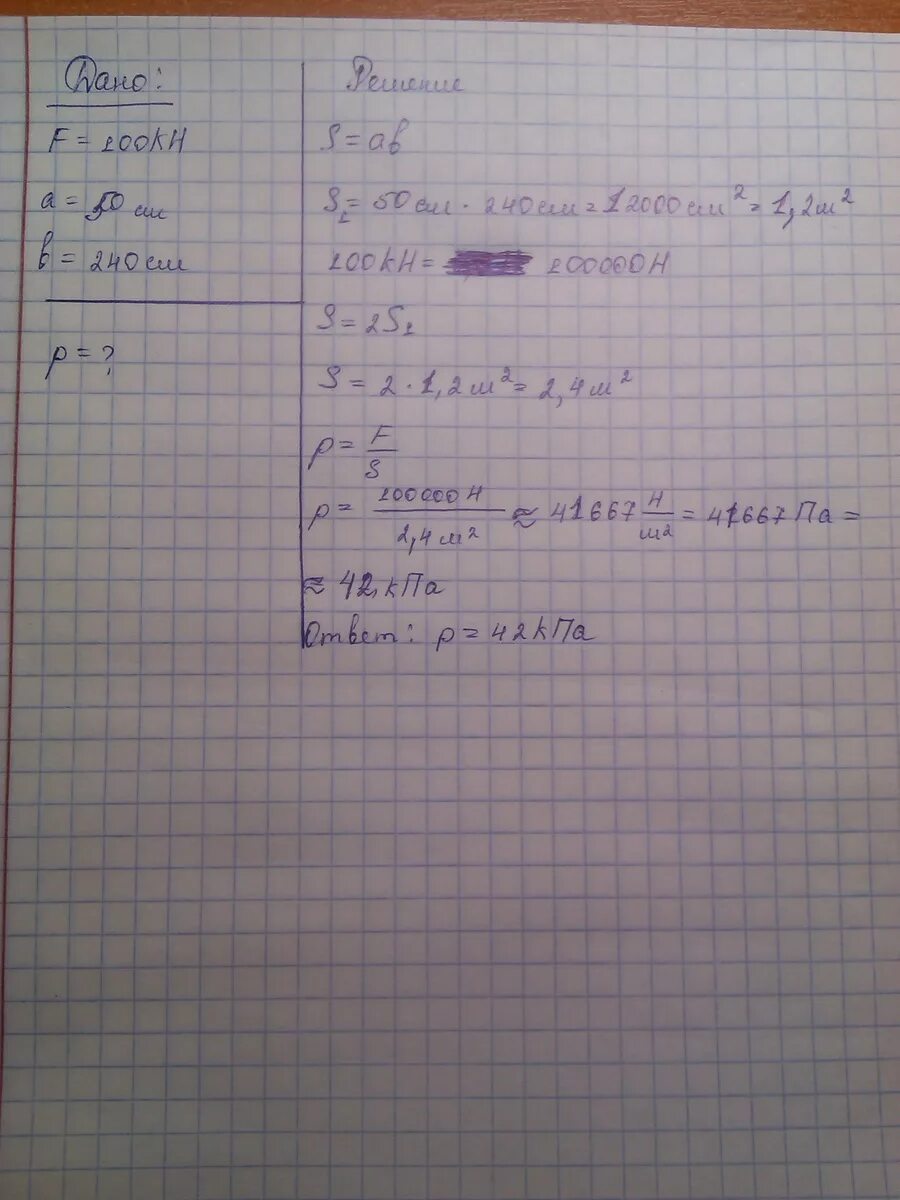 Дано:
F = 100кН
a = 50 см
в = 240 см
p = ?
Решение
S = aв
S₁ = 50 см · 240 см = 12000 см² = 1,2 м²
100кН = 100000Н
S = 2S₁
S = 2 · 1,2 м² = 2,4 м²
p = F/S
p = 100000 Н / 2,4 м² ≈ 41667 Н/м² = 41667 Па =
≈ 42 кПа
Ответ: p = 42 кПа